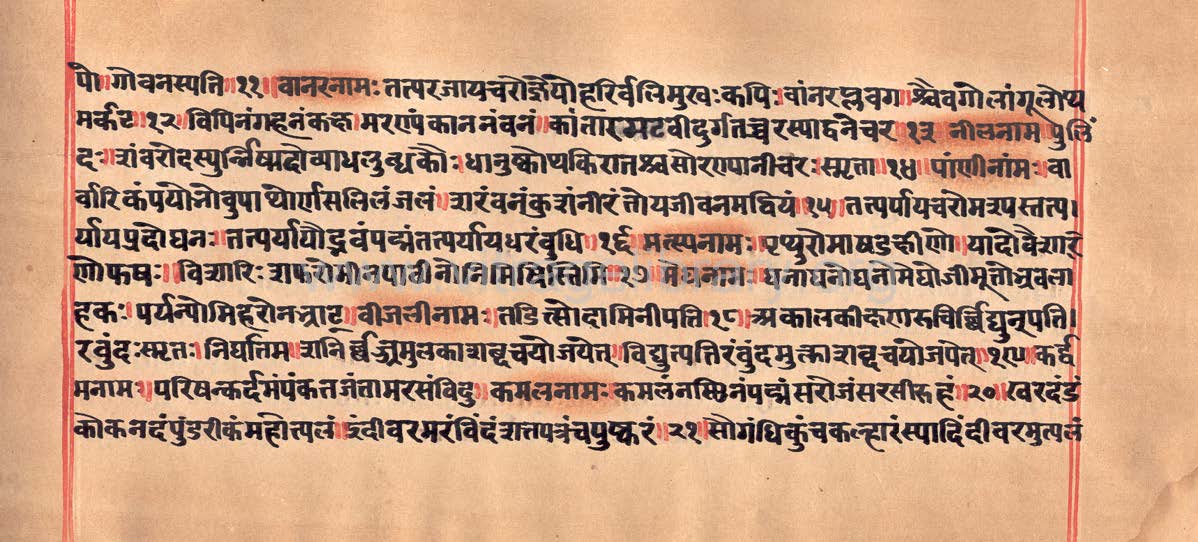 पो॥गोवनस्पति॥११॥वानरनामः तत्परजायचरोर्ज्ञेयोहरिर्वलिमुखःकपिः वांनरप्लवग॥श्चैवगोलांगूलोथ
मर्कट॥१२॥विपिनंगहनंकक्षमरण्पंकाननंवनं॥कांतारमटवीदुर्गतच्चरस्यादनेचर॥१३ नीलनामपुलिं
दः॥शंवरोदस्युर्न्निषादोव्याधलुब्धकौः॥धानुष्कोथकिरातश्चसोरण्पानीचरःस्मृता॥१४॥पांणीनांमः॥वा
र्वारिकंपयोंभोवुपाथोर्णसलिलंजलं॥शरंवनंकुशंनीरंतोयजीवनमद्वियं॥१५॥तत्पर्यायचरोमत्स्यस्तत्प।
र्यायप्रदोघनः॥तत्पर्यायोद्भवंपद्मंतत्पर्यायधरंबुधि॥१६॥मत्स्यनामः॥पृथुरोमाषडक्षीणो॥यादोवैशारि
णोफषः॥विशारिःशफरोमीनपाठीनोनिमिषस्तिमि॥१७॥मेघनामः॥घनाघनोघनोमेघोजीमूतोभ्रवला
हकः॥पर्यन्पोमिहरोनभ्राट्॥वीजलीनामः॥तडित्सोदामिनीपत्ति॥१८॥अकालकीकणरुचिर्विद्युत्पति।
रवुंदःस्मृतः॥निर्घातम॥शनिर्वज्रमुलकाशब्दचयोजयेत्॥विद्युत्पत्तिरंवुंदमुल्काशब्दचयोजपेत्॥१९॥कर्द्द
मनामः॥परिषन्कर्दमंपंकतजंतामरसंविदु॥कमलनामः॥कमलंनलिनंपद्मंसरोजंसरसीरुहं॥२०॥खरदंडं
कोकनदंपुंडरीकंमहोत्पलं॥इंदीवरमरंविंदंशतपत्रंचपुष्करं॥२१॥सौगंधिकुंचकल्हारंस्पादिंदीवरमुत्पलं